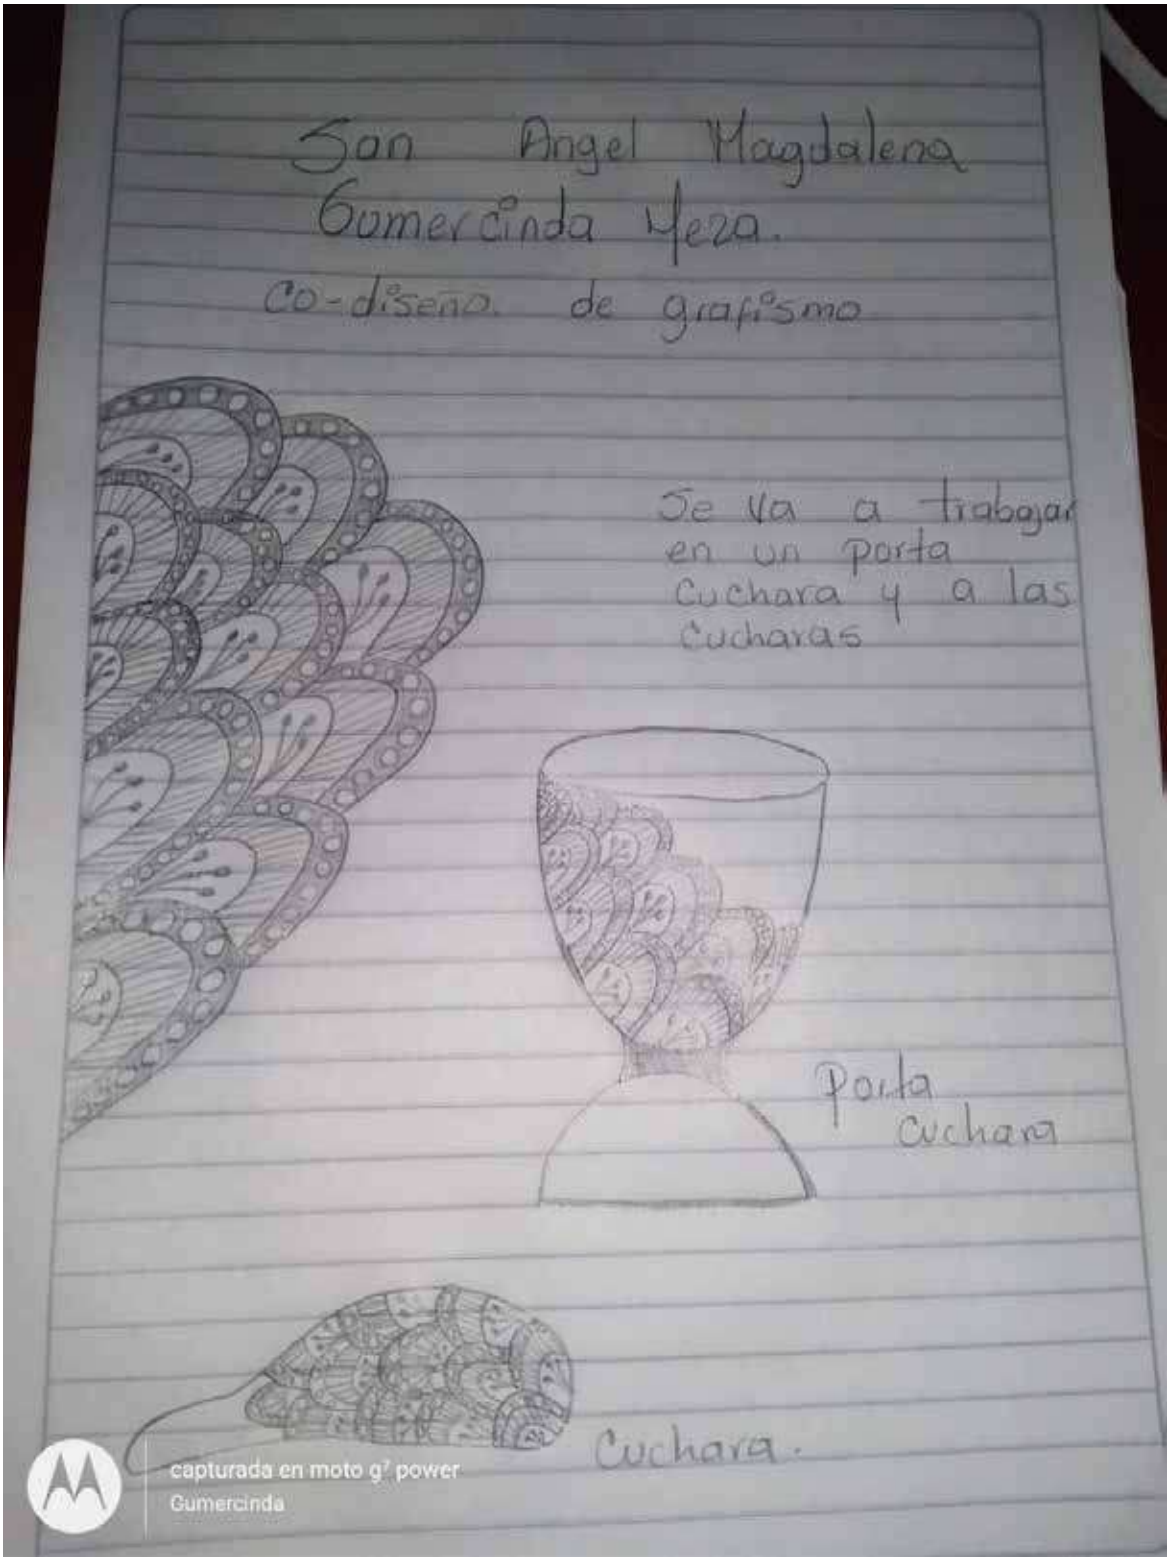 San Angel Magdalena
Gumercinda Meza.
co-diseño. de grafismo
Se va a trabajar
en un porta
cuchara y a las
cucharas
Porta
cuchara
Cuchara.
capturada en moto g⁷ power
Gumercinda